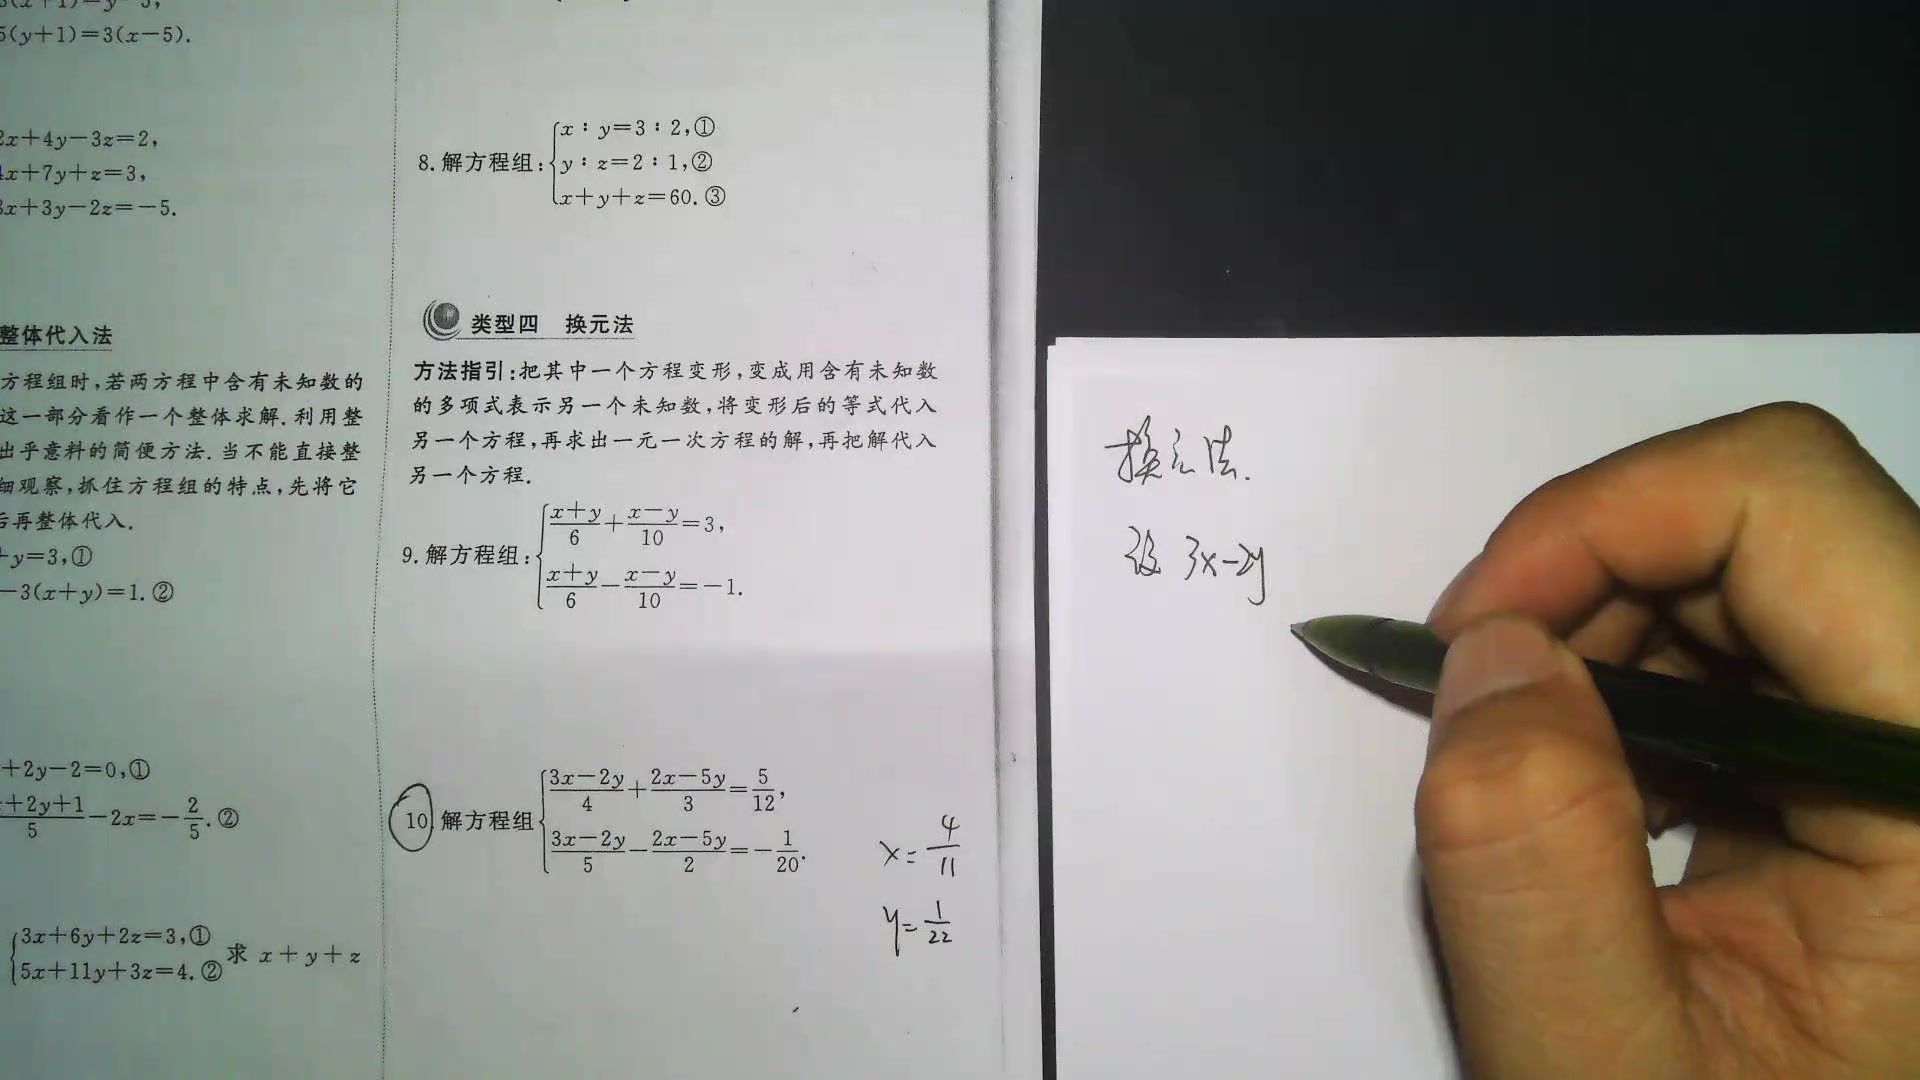 5(y+1)=3(x-5).
2x+4y-3z=2,
x+7y+z=3,
3x+3y-2z=-5.
整体代入法
方程组时,若两方程中含有未知数的
这一部分看作一个整体求解.利用整
出乎意料的简便方法.当不能直接整
细观察,抓住方程组的特点,先将它
后再整体代入.
+y=3,①
-3(x+y)=1.②
+2y-2=0,①
+2y+1/5-2x=-2/5.②
3x+6y+2z=3,①
5x+11y+3z=4.②
求 x+y+z
8.解方程组:
x:y=3:2,①
y:z=2:1,②
x+y+z=60.③
类型四 换元法
方法指引:把其中一个方程变形,变成用含有未知数
的多项式表示另一个未知数,将变形后的等式代入
另一个方程,再求出一元一次方程的解,再把解代入
另一个方程.
9.解方程组:
x+y/6+x-y/10=3,
x+y/6-x-y/10=-1.
10.解方程组
3x-2y/4+2x-5y/3=5/12,
3x-2y/5-2x-5y/2=-1/20.
x=4/11
y=1/22
换元法.
设 3x-2y